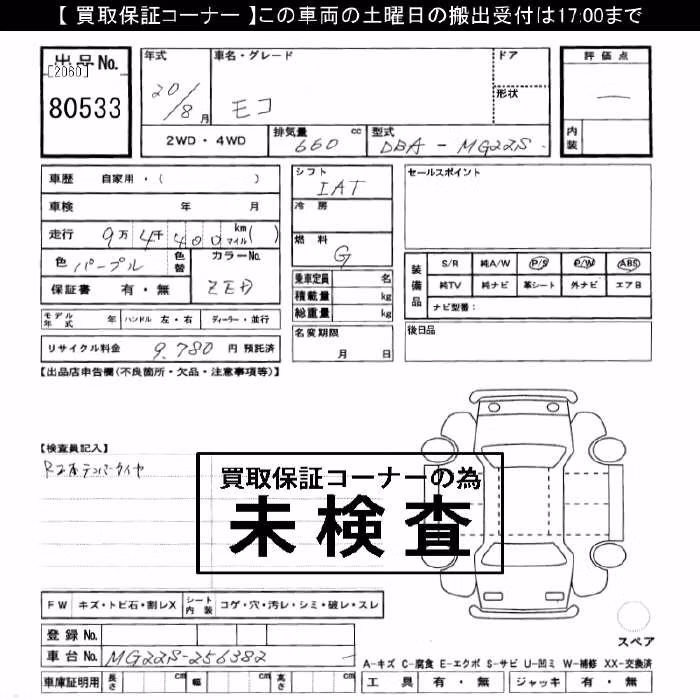 【 買取保証コーナー 】この車両の土曜日の搬出受付は17:00まで
出品No.
[2060]
80533
年式
20/8月
車名・グレード
モコ
ドア
形状
評価点
—
内装
2WD・4WD
排気量
660 cc
型式
DBA - MG22S
車歴 自家用・( )
車検 年 月
走行 9万4千400 km マイル ( )
色 パープル
色替
カラーNo.
ZED
保証書 有・無
シフト
IAT
冷房
燃料
G
乗車定員 名
積載量 kg
総重量 kg
セールスポイント
装備品
S/R 純A/W P/S P/W ABS
純TV 純ナビ 革シート 外ナビ エアB
ナビ型番:
モデル年式 年 ハンドル 左・右 ディーラー・並行
名変期限
月 日
後日品
リサイクル料金 9.780 円 預託済
【出品店申告欄(不良箇所・欠品・注意事項等)】
【検査員記入】
テンパータイヤ
買取保証コーナーの為
未検査
FW キズ・トビ石・割レX シート内装 コゲ・穴・汚レ・シミ・破レ・スレ
スペア
登録No.
車台No. MG22S-256382
A-キズ C-腐食 E-エクボ S-サビ U-凹ミ W-補修 XX-交換済
車庫証明用 長さ cm 幅 cm 高さ cm
工具 有・無 ジャッキ 有・無